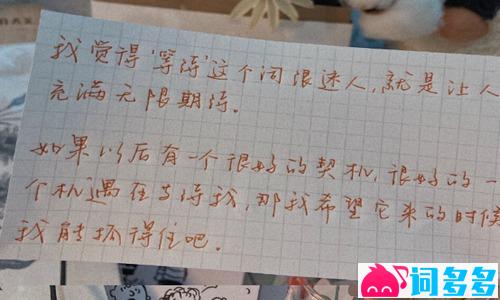 我觉得‘等待’这个词很迷人，就是让人
充满无限期待。
如果以后有一个很好的契机，很好的一
个机遇在等待我，那我希望它来的时候
我能抓得住吧。
词多多